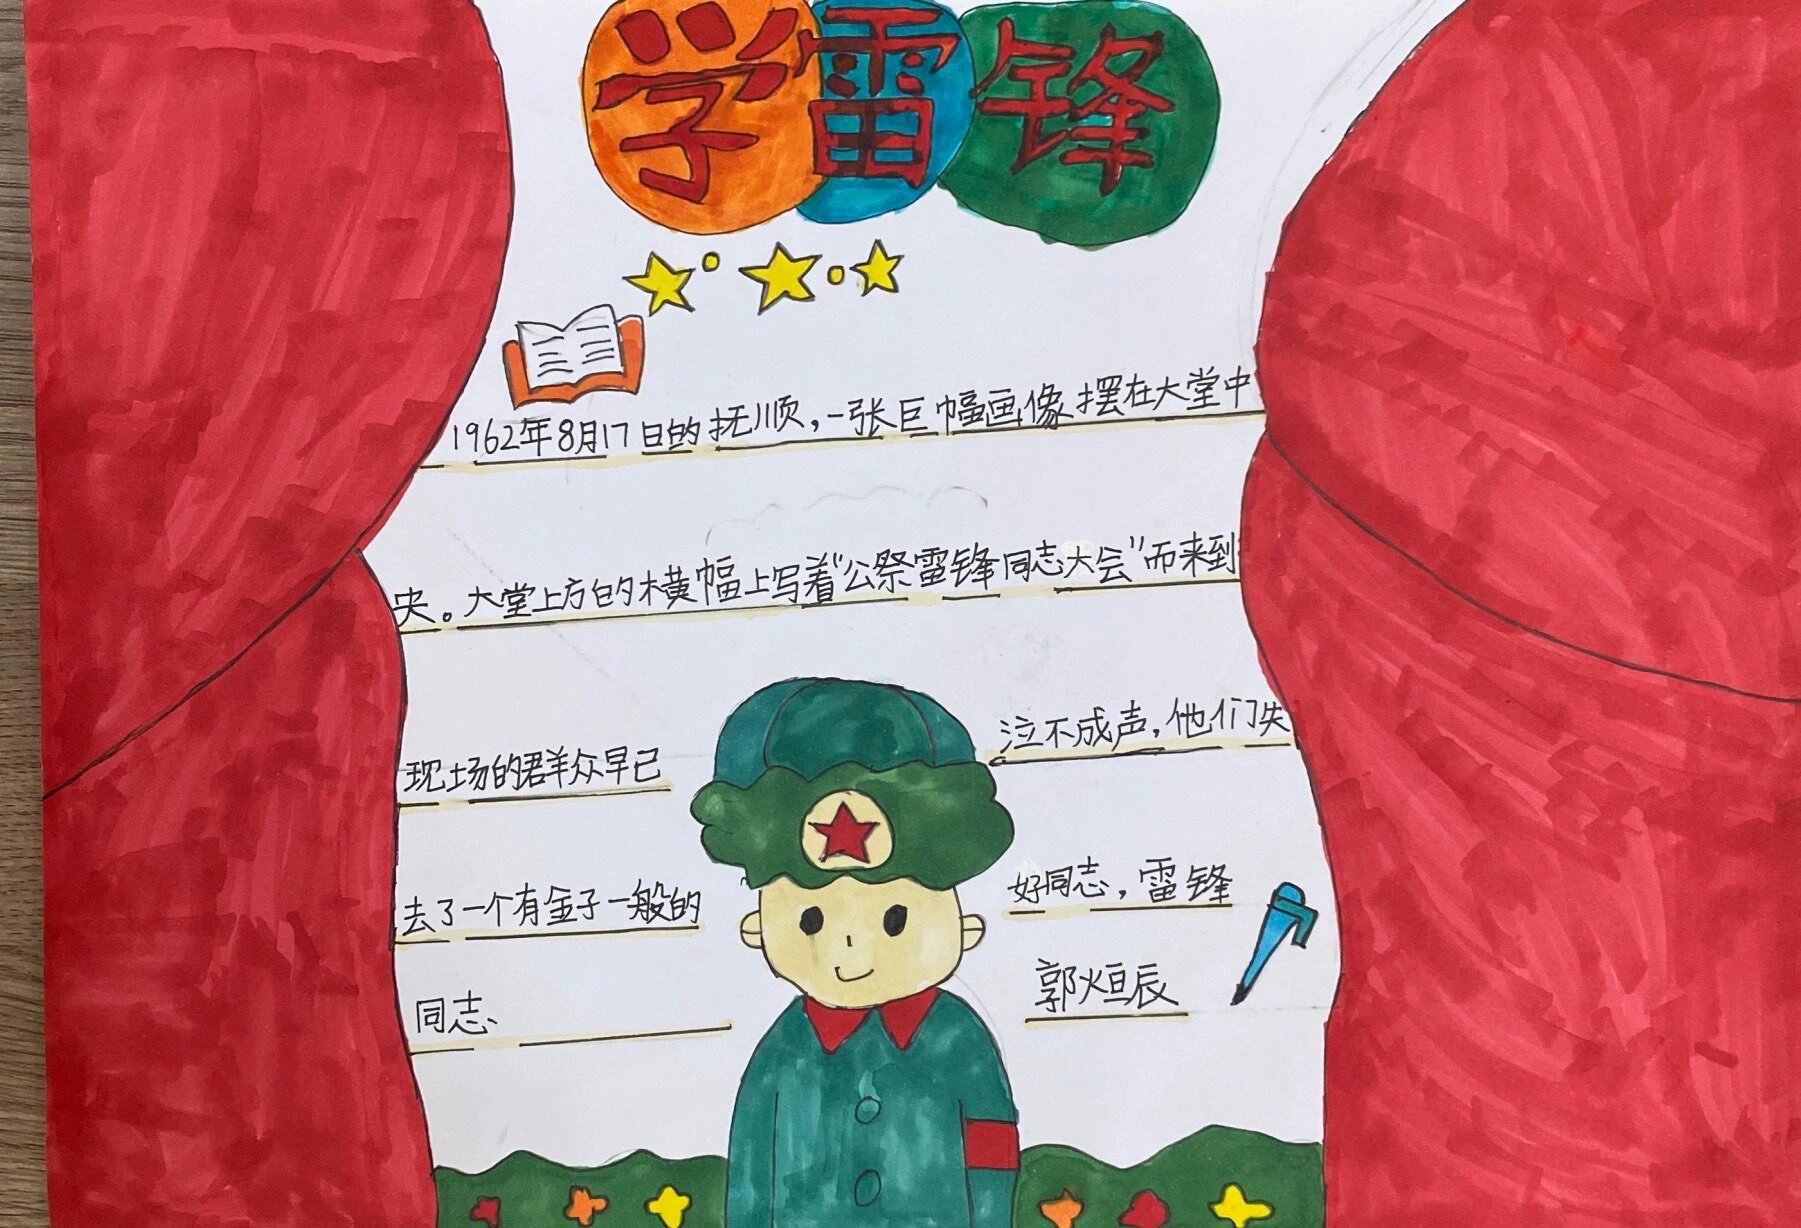 学雷锋
1962年8月17日的抚顺，一张巨幅画像摆在大堂中
央。大堂上方的横幅上写着“公祭雷锋同志大会”而来到
现场的群众早已泣不成声，他们失
去了一个有金子一般的好同志，雷锋
同志、
郭烜辰